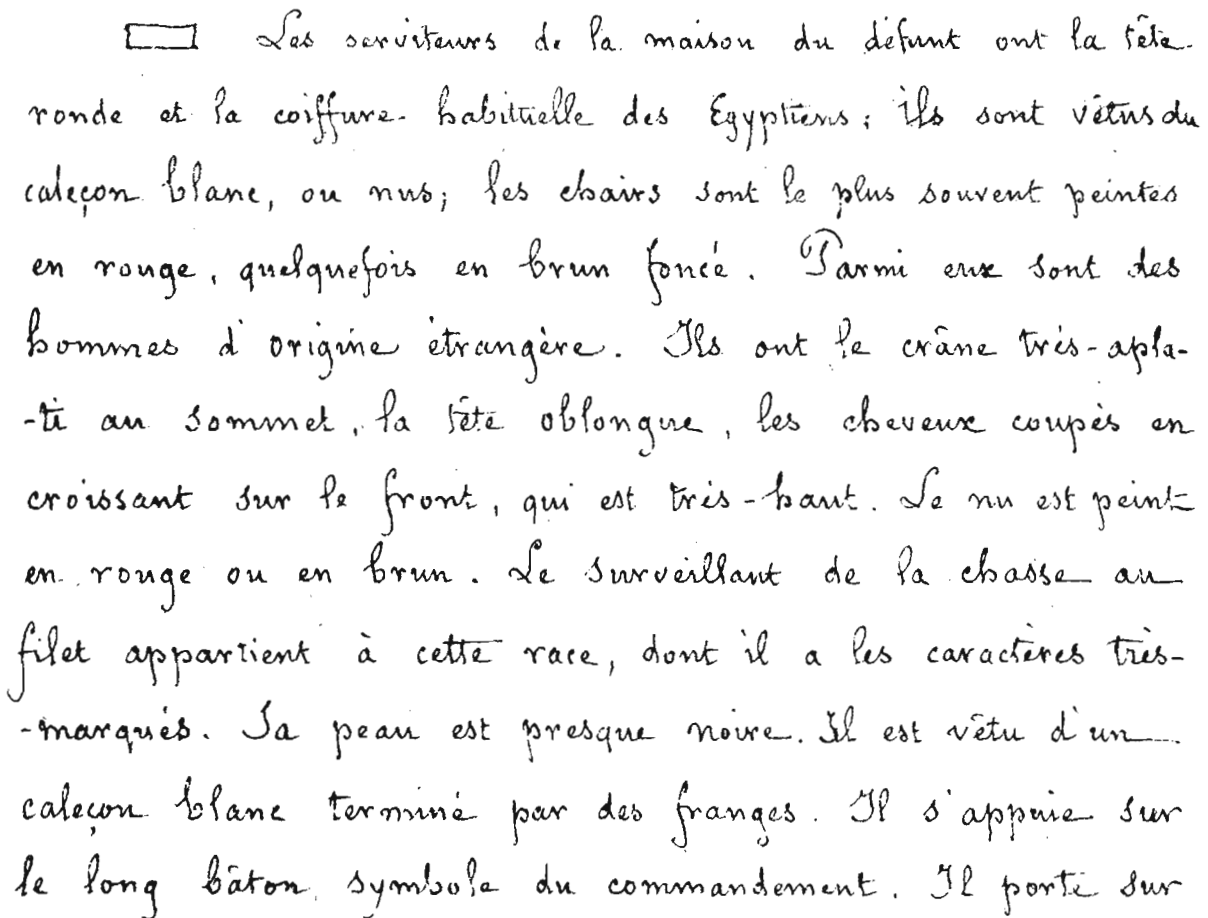 Les serviteurs de la maison du défunt ont la tête
ronde et la coiffure habituelle des Egyptiens; ils sont vêtus du
caleçon blanc, ou nus; les chairs sont le plus souvent peintes
en rouge, quelquefois en brun foncé. Parmi eux sont des
hommes d'origine étrangère. Ils ont le crâne très-apla-
-ti au sommet, la tête oblongue, les cheveux coupés en
croissant sur le front, qui est très-haut. Le nu est peint
en rouge ou en brun. Le surveillant de la chasse au
filet appartient à cette race, dont il a les caractères très-
-marqués. Sa peau est presque noire. Il est vêtu d'un
caleçon blanc terminé par des franges. Il s'appuie sur
le long bâton, symbole du commandement. Il porte sur